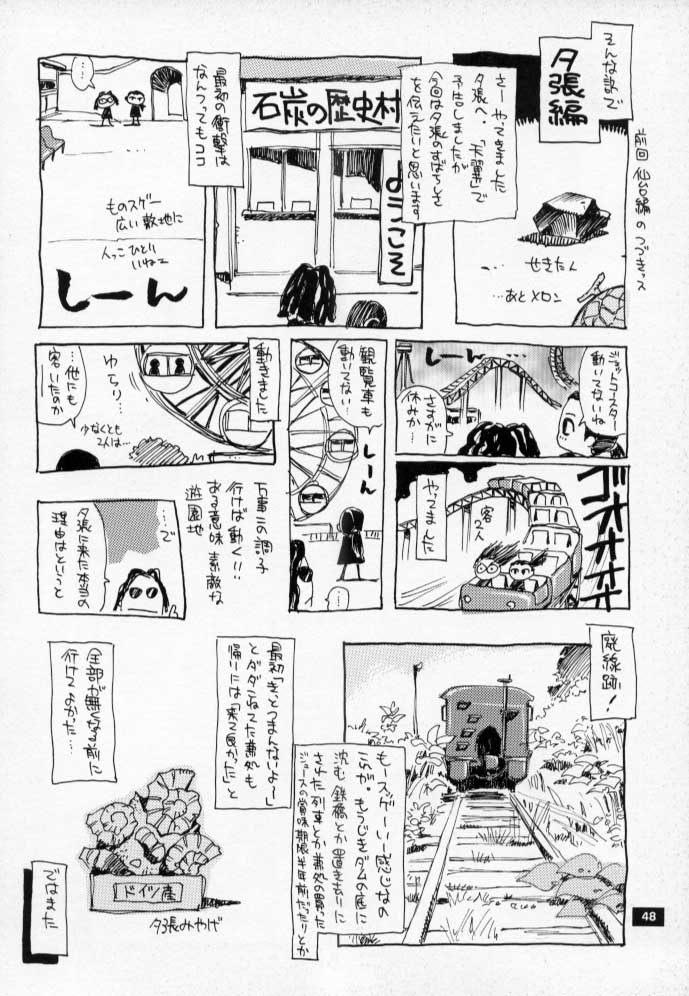 そんな訳で
夕張編
前回 仙台編のつづきッス
せきたん
…あとメロン
さーやってきました
夕張へ。「天翼」で
予告しましたが
今回は夕張のすばらしさ
を伝えたいと思います。
石炭の歴史村
ようこそ
最初の衝撃は
なんつってもココ
…
ものスゲー
広い敷地に
人っこひとり
いねェ
しーん
ジェットコースター
動いてないね
しーん
さすがに
休みか…
ゴオオオオ
客2人
やってました
観覧車も
動いてない
しーん
…
動きました
ゆらり…
…他にも
客いたのか
少なくとも
2人は…
万事この調子
行けば動く!!
ある意味 素敵な
遊園地
…で
夕張に来た本当の
理由はというと
廃線跡!
もースゲーいー感じなの
これが。もうじきダムの底に
沈む 鉄橋とか置き去りに
された列車とか 兼処の買った
ジュースの賞味期限半年前だったりとか
最初「き、とつまんないよ〜」
とダダこねてた兼処も
帰りには「来て良かった」と
全部が無くなる前に
行けてよかった…
ドイツ産
夕張みやげ
ではまた
48